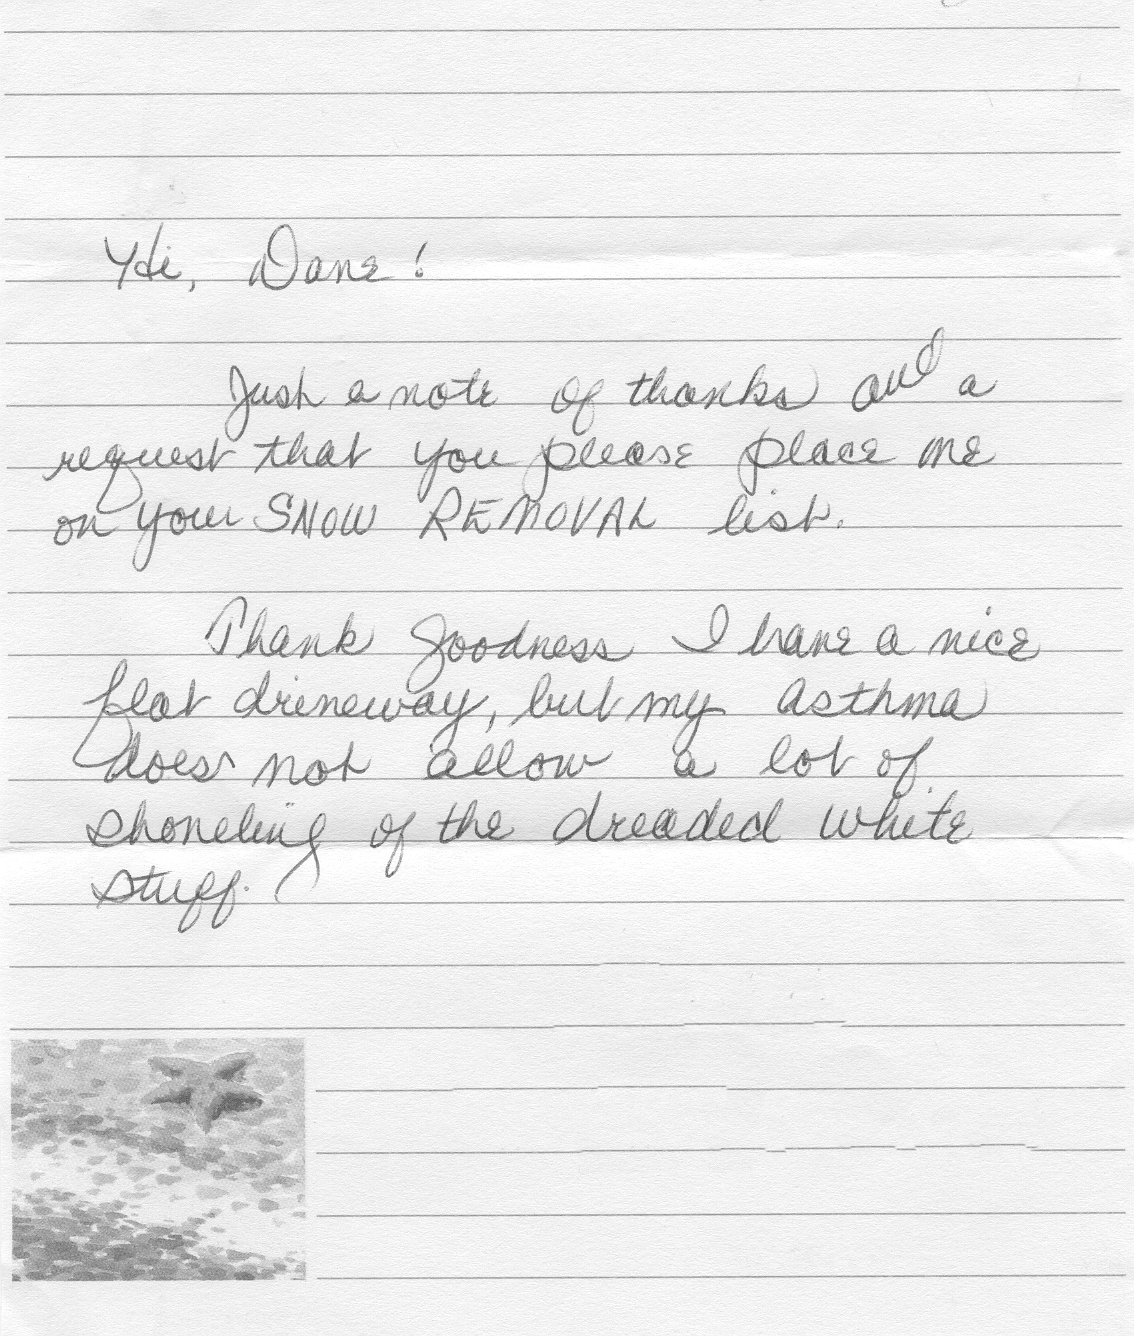 Hi, Dave!
Just a note of thanks and a
request that you please place me
on your SNOW REMOVAL list.
Thank goodness I have a nice
flat driveway, but my asthma
does not allow a lot of
shoveling of the dreaded white
stuff.